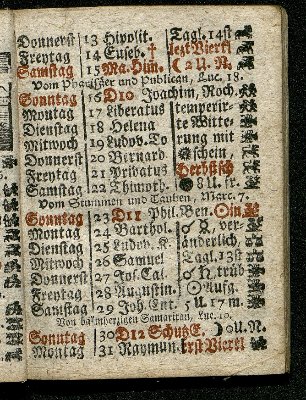 Donnerst 13 Hipolit. Tagl. 14 st
Freytag 14 Euseb. † letzt Viertl
Samstag 15 Ma. Him. ☾ 2 U. N.
Vom Phariseer und Publican, Luc. 18.
Sonntag 16 D10 Joachim, Roch.
Montag 17 Liberatus temperir-
Dienstag 18 Helena te Witte-
Mitwoch 19 Ludov. To rung mit
Donnerst 20 Bernard schein,
Freytag 21 Privatus Herbstsch
Samstag 22 Thimoth. 8 U. fr.
Vom Stummen und Tauben, Marc. 7.
Sonntag 23 D11 Phil. Ben. ☉ in
Montag 24 Barthol. ver-
Dienstag 25 Ludov. K. änderlich,
Mitwoch 26 Samuel Tagl. 13 st
Donnerst 27 Jos. Cal. trüb
Freytag 28 Augustin. ☉ Aufg.
Samstag 29 Joh. Ent. 5 U 17 m.
Von barmherzigen Samaritan, Luc. 10.
Sonntag 30 D12 Schutz E. ☽ 0 U. N.
Montag 31 Raymun. Erst Viertl